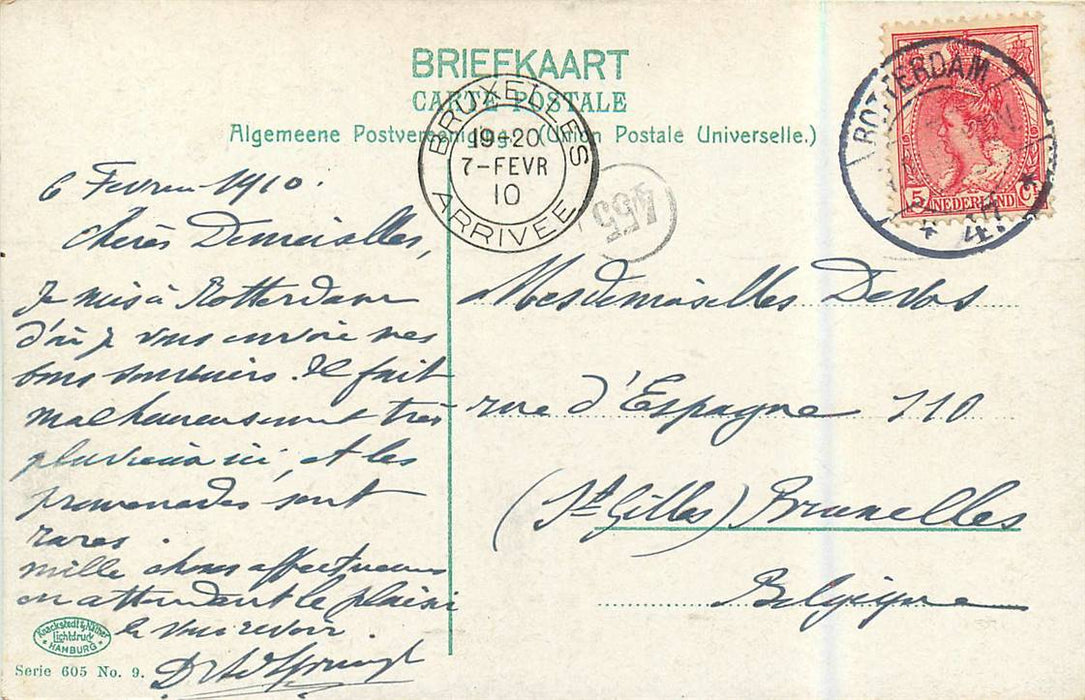 BRIEFKAART
CARTE POSTALE
Algemeene Postvereeniging. (Union Postale Universelle.)
BRUXELLES
19-20
7-FEVR
10
ARRIVEE
455
ROTTERDAM
5 NEDERLAND Ct
6 Fevrier 1910.
chères Demoiselles,
Je suis à Rotterdam
d'où je vous envoie mes
bons souvenirs. Il fait
malheureusement très
pluvieux ici, et les
promenades sont
rares.
mille choses affectueuses
en attendant le plaisir
de vous revoir.
Mesdemoiselles Devos
rue d'Espagne 110
(St Gilles) Bruxelles
Belgique
Knackstedt & Näther
Lichtdruck
HAMBURG
Serie 605 No. 9.